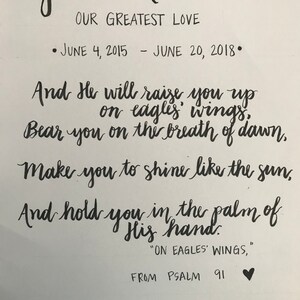 OUR GREATEST LOVE
• JUNE 4, 2015 – JUNE 20, 2018 •
And He will raise you up
on eagles' wings,
Bear you on the breath of dawn,
Make you to shine like the sun,
And hold you in the palm of
His hand.
"ON EAGLES' WINGS,"
FROM PSALM 91